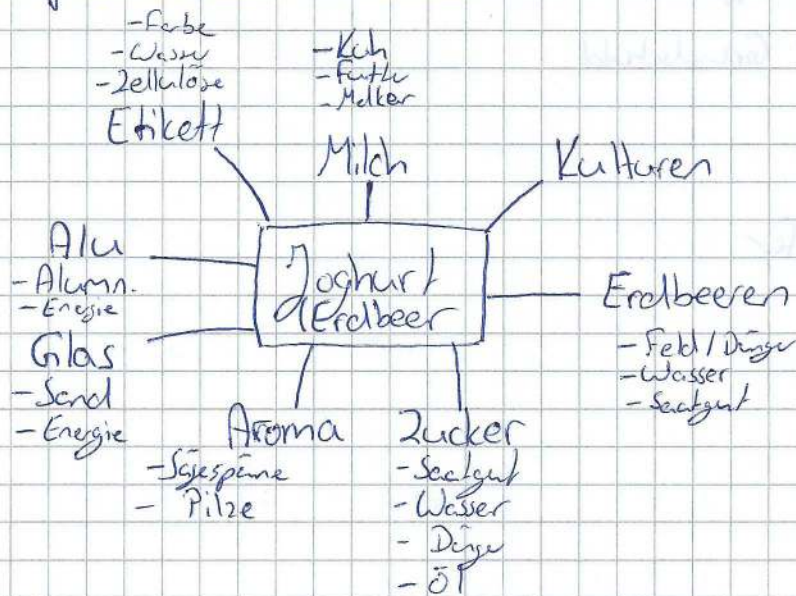 - Farbe
- Wasser
- Zellulose
Etikett
- Kuh
- Futter
- Melker
Milch
Kulturen
Alu
- Alumn.
- Energie
Joghurt
Erdbeer
Erdbeeren
- Feld / Dünger
- Wasser
- Saatgut
Glas
- Sand
- Energie
Aroma
- Sägespäne
- Pilze
Zucker
- Saatgut
- Wasser
- Dünger
- Öl